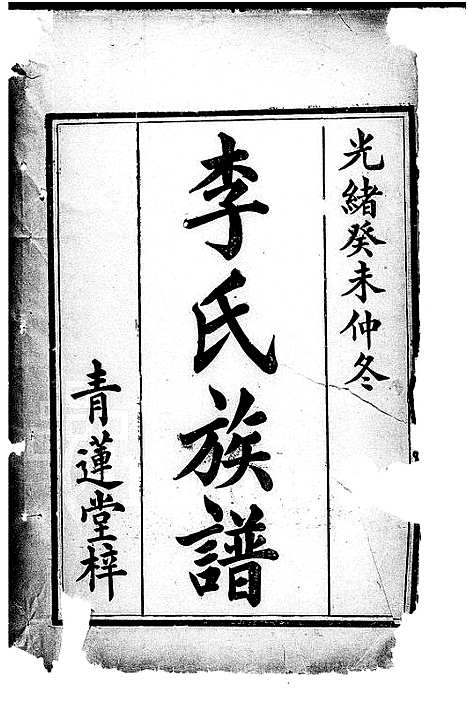 光緒癸未仲冬
李氏族譜
青蓮堂梓